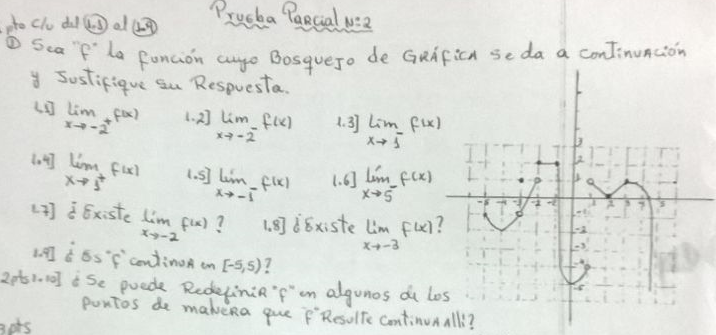 Prueba Parcial N:2
pto c/u del (1.1) al (1.9)
① Sea "f" la función cuyo Bosquejo de GRÁFICA se da a continuación
y Justifique su Respuesta.
1.1] lim x→-2⁺ f(x) 1.2] lim x→-2⁻ f(x) 1.3] lim x→1⁻ f(x)
1.4] lim x→1⁺ f(x) 1.5] lim x→-1⁻ f(x) 1.6] lim x→5⁻ f(x)
1.7] ¿Existe lim x→-2 f(x)? 1.8] ¿Existe lim x→-3 f(x)?
1.9] ¿Es "f" continua en [-5,5)?
2pts 1.10] ¿Se puede Redefinir "f" en algunos de los
puntos de manera que f Resulte continua allí?
3pts